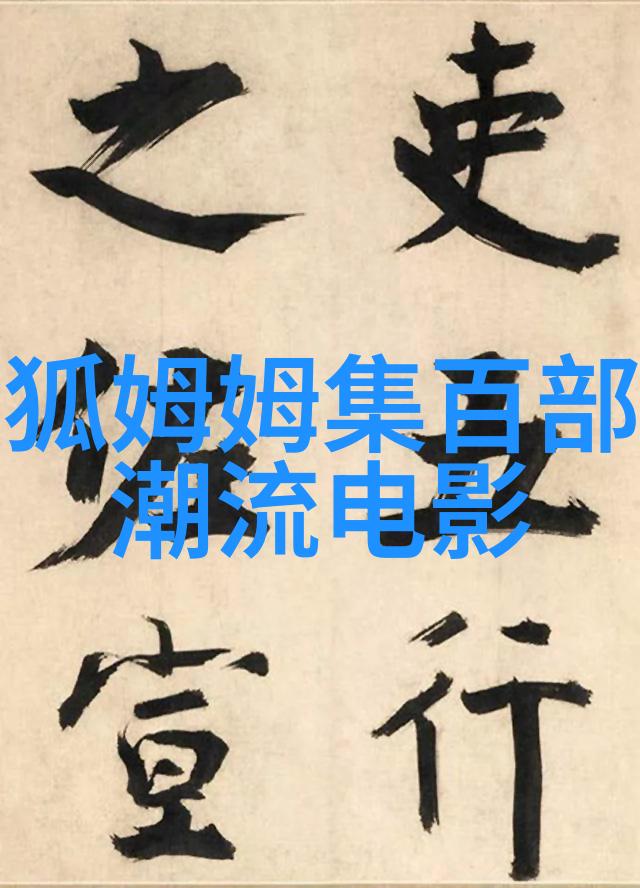 狐姆姆集百部
潮流电影
吏
行
之
宣